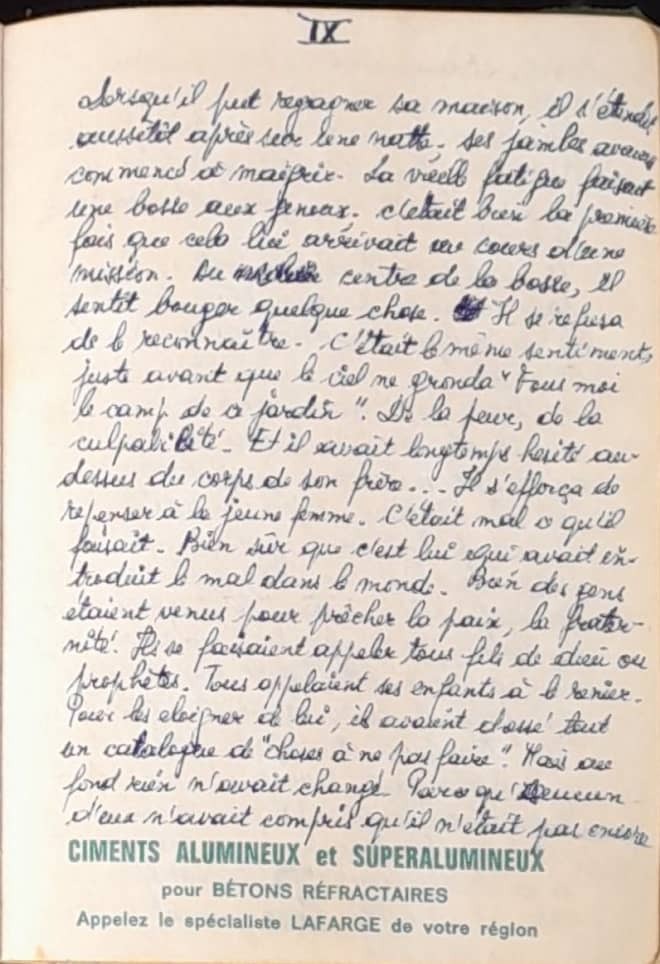 IX
Lorsqu'il put regagner sa maison, il s'étendit
aussitôt après sur une natte. Ses jambes avaient
commencé à maigrir. La vieille fatigue faisait
une bosse aux genoux. C'était bien la première
fois que cela lui arrivait au cours d'une
mission. Au centre de la bosse, il
sentit bouger quelque chose. Il se refusa
de le reconnaître. C'était le même sentiment,
juste avant que le ciel ne gronda "Fous moi
le camp de ce jardin". De la peur, de la
culpabilité. Et il avait longtemps hésité au-
dessus du corps de son frère... Il s'efforça de
repenser à la jeune femme. C'était mal ce qu'il
faisait. Bien sûr que c'est lui qui avait in-
troduit le mal dans le monde. Bien des gens
étaient venus pour prêcher la paix, la frater-
nité. Ils se faisaient appeler tous fils de dieu ou
prophètes. Tous appelaient ses enfants à le renier.
Pour les eloigner de lui, ils avaient dressé tout
un catalogue de "choses à ne pas faire". Mais au
fond rien n'avait changé. Parce qu'aucun
d'eux n'avait compris qu'il n'était pas encore
CIMENTS ALUMINEUX et SUPERALUMINEUX
pour BÉTONS RÉFRACTAIRES
Appelez le spécialiste LAFARGE de votre région